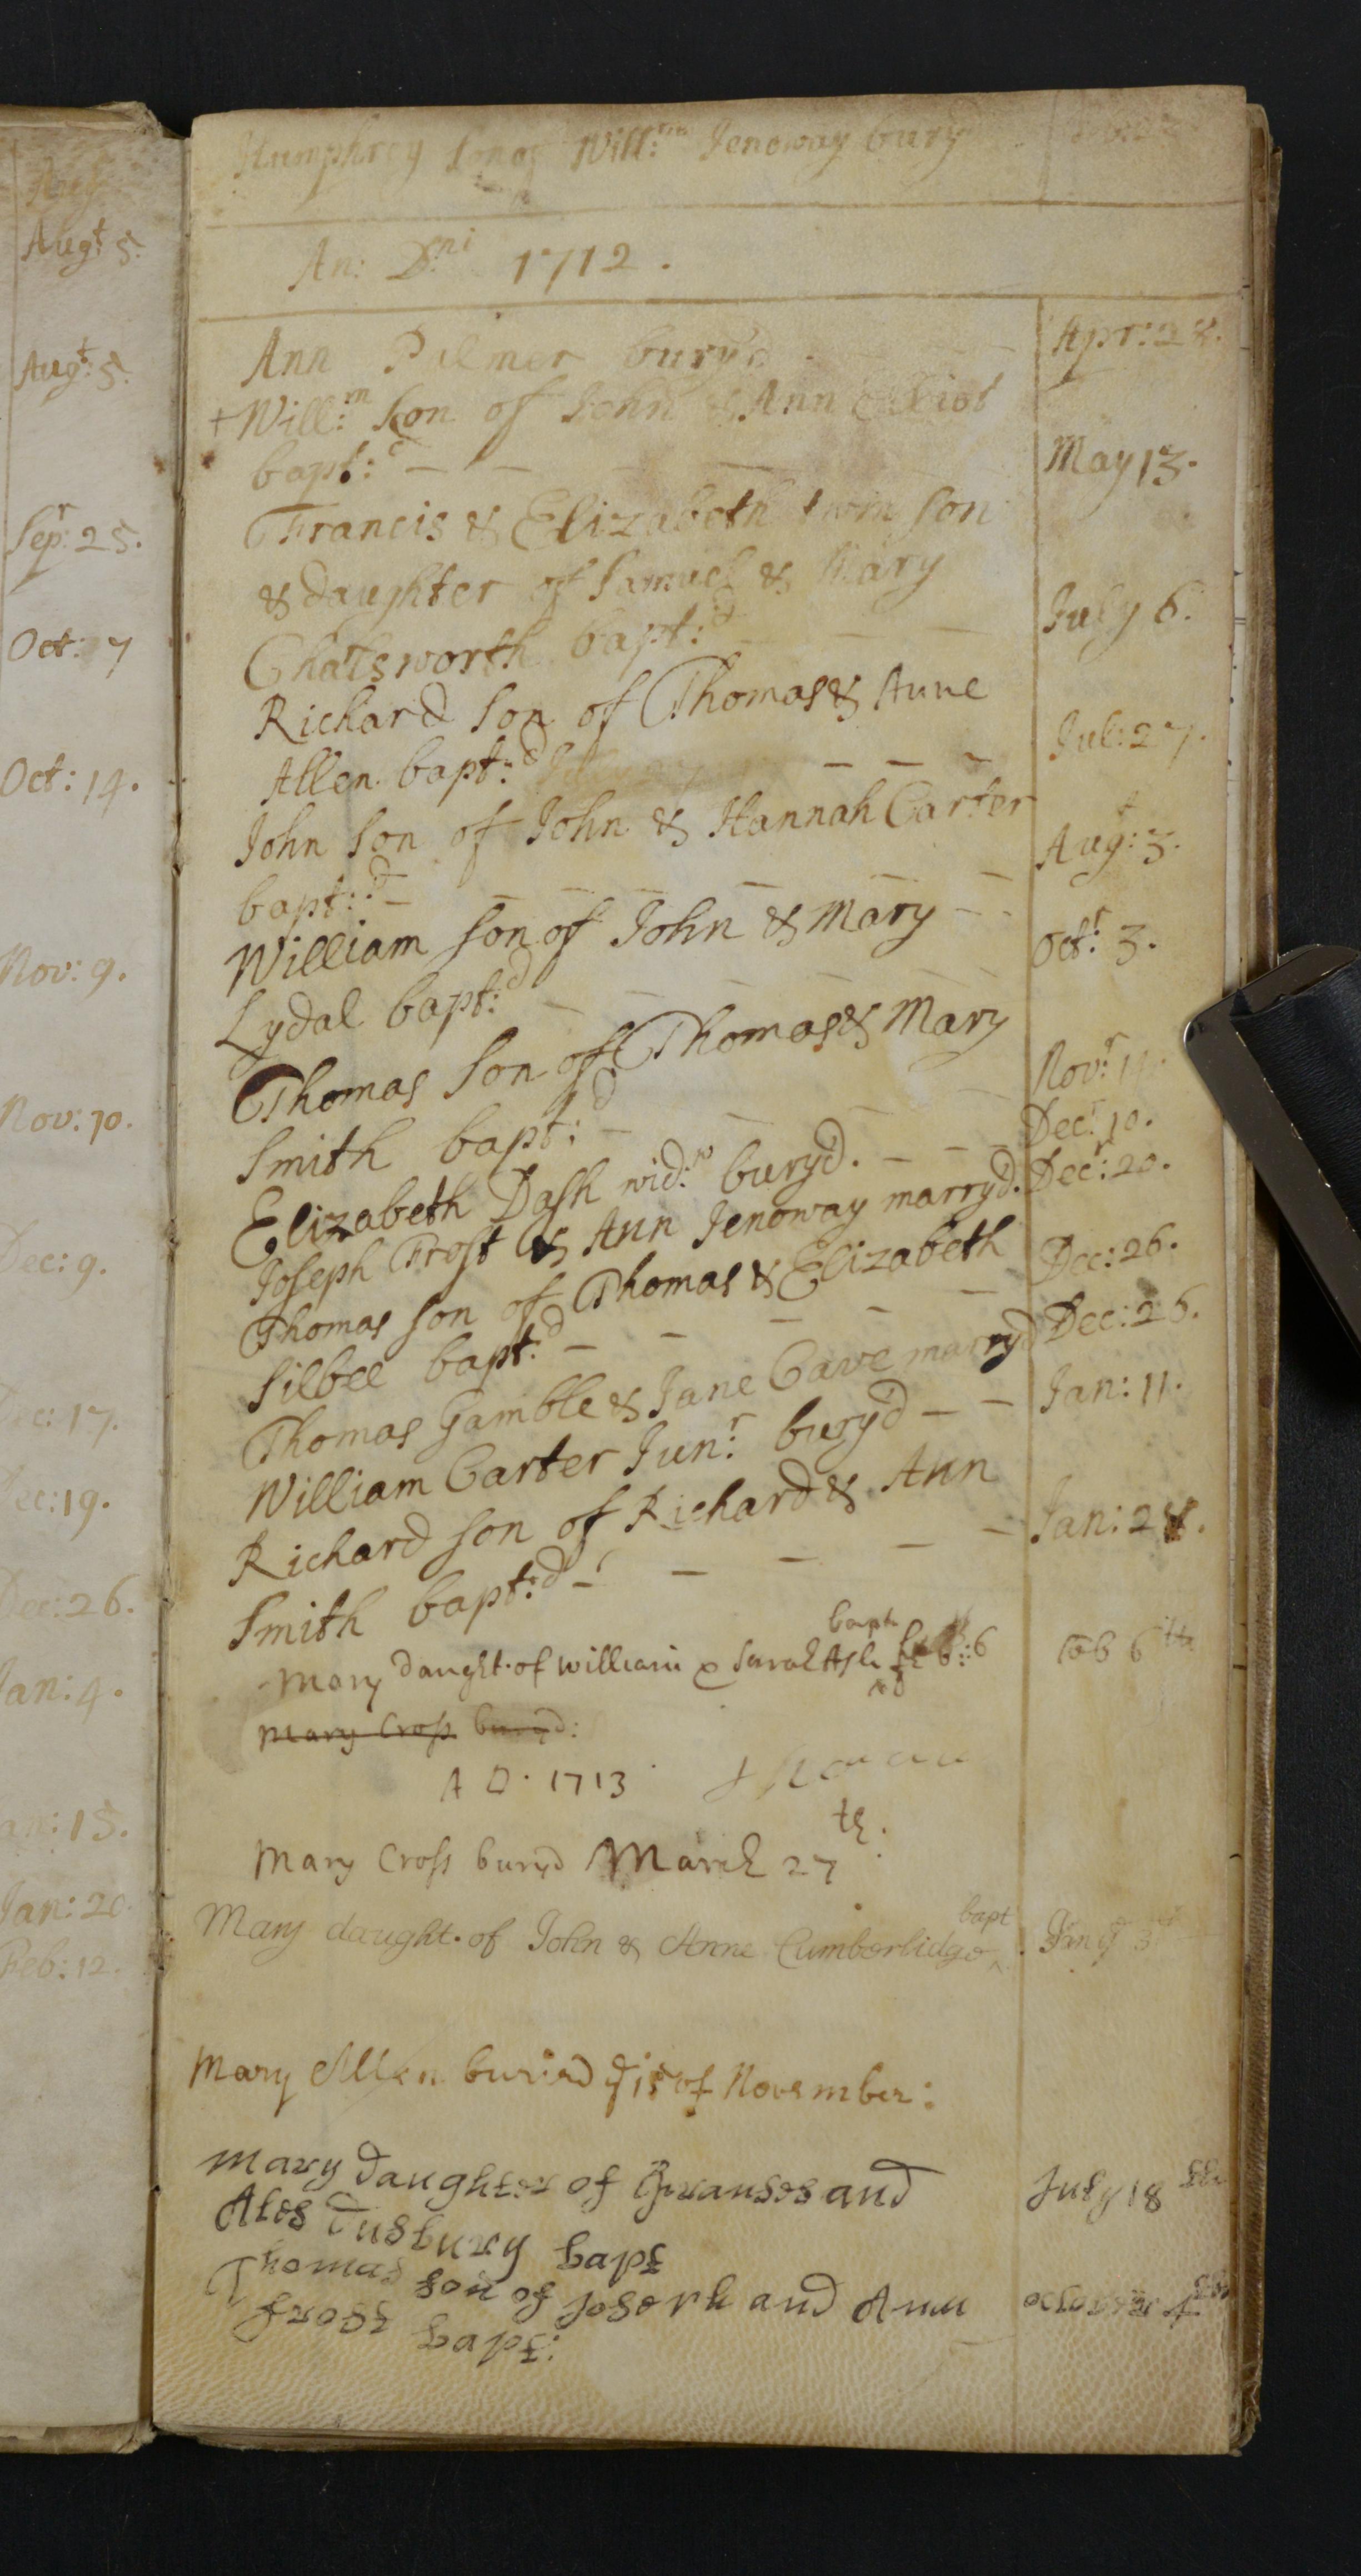 Aug
Augt: 5.
Augt: 5.
Sepr: 25.
Oct: 7
Oct: 14.
Nov: 9.
Nov: 10.
Dec: 9.
Dec: 17.
Dec: 19.
Dec: 26.
Jan: 4.
Jan: 15.
Jan: 20.
Feb: 12.
Humphrey son of Will:m Jenoway bury
An: Dni 1712.
Ann Palmer bury'd Apr: 28.
+ Will:m son of John & Ann Elliot
bapt:d — — May 13.
Francis & Elizabeth twin son
& daughter of Samuel & Mary
Chatsworth bapt:d — — — July 6.
Richard son of Thomas & Anne
Allen bapt:d — — — Jul: 27.
John son of John & Hannah Carter
bapt:d — — — — — — Augt: 3.
William son of John & Mary — —
Lydal bapt:d — — — — — Octr: 3.
Thomas son of Thomas & Mary
Smith bapt:d — — — Novr:
Elizabeth Dash wid:w bury'd. — — Decr: 10.
Joseph Frost & Ann Jenoway marry'd. Decr: 20.
Thomas son of Thomas & Elizabeth
Silbee bapt:d — — — — — Dec: 26.
Thomas Gamble & Jane Cave marry'd Dec: 26.
William Carter Jun:r bury'd — — Jan: 11.
Richard son of Richard & Ann
Smith bapt:d — — — — — Jan: 28.
bapt
Mary daught. of William & Sarah Ash 6 Feb 6th
Mary Cross buryd:
A D. 1713
Mary Cross buryd March 27th.
bapt
Mary daught. of John & Anne Cumberlidge ^.
Mary Allen buried ye 15 of November:
Mary daughter of Franses and
Ales Dusbury bapt July 18th
Thomas son of Joseph and Ann
frost bapt: october 4th